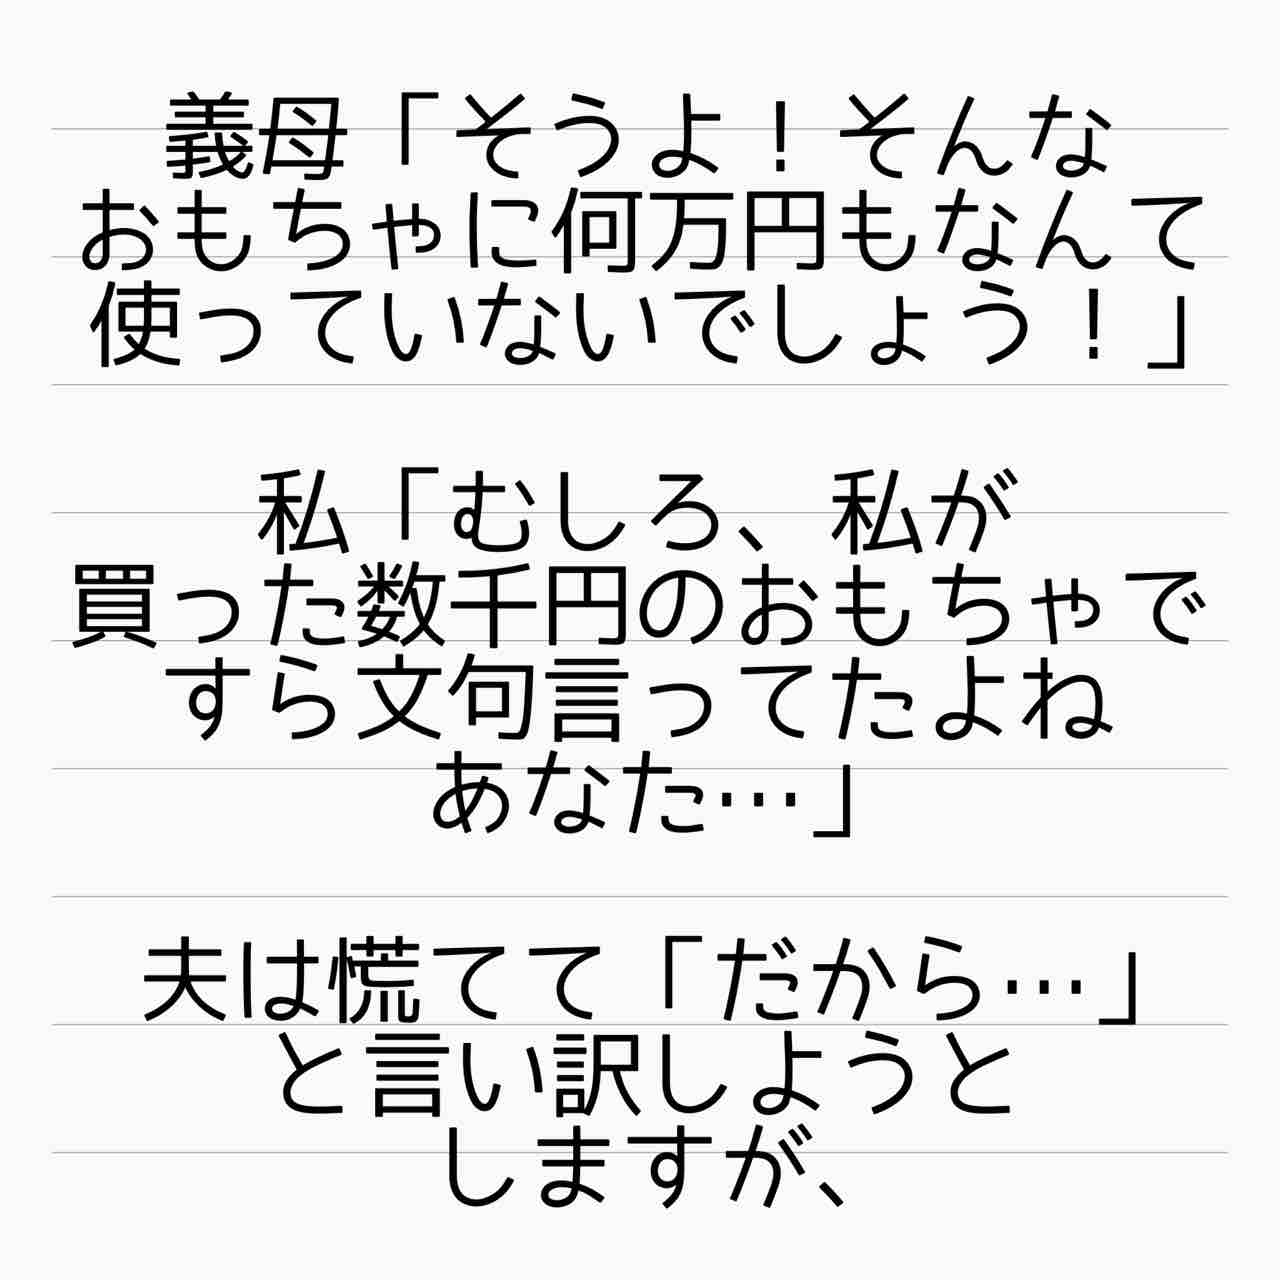 義母「そうよ！そんな
おもちゃに何万円もなんて
使っていないでしょう！」
私「むしろ、私が
買った数千円のおもちゃで
すら文句言ってたよね
あなた…」
夫は慌てて「だから…」
と言い訳しようと
しますが、